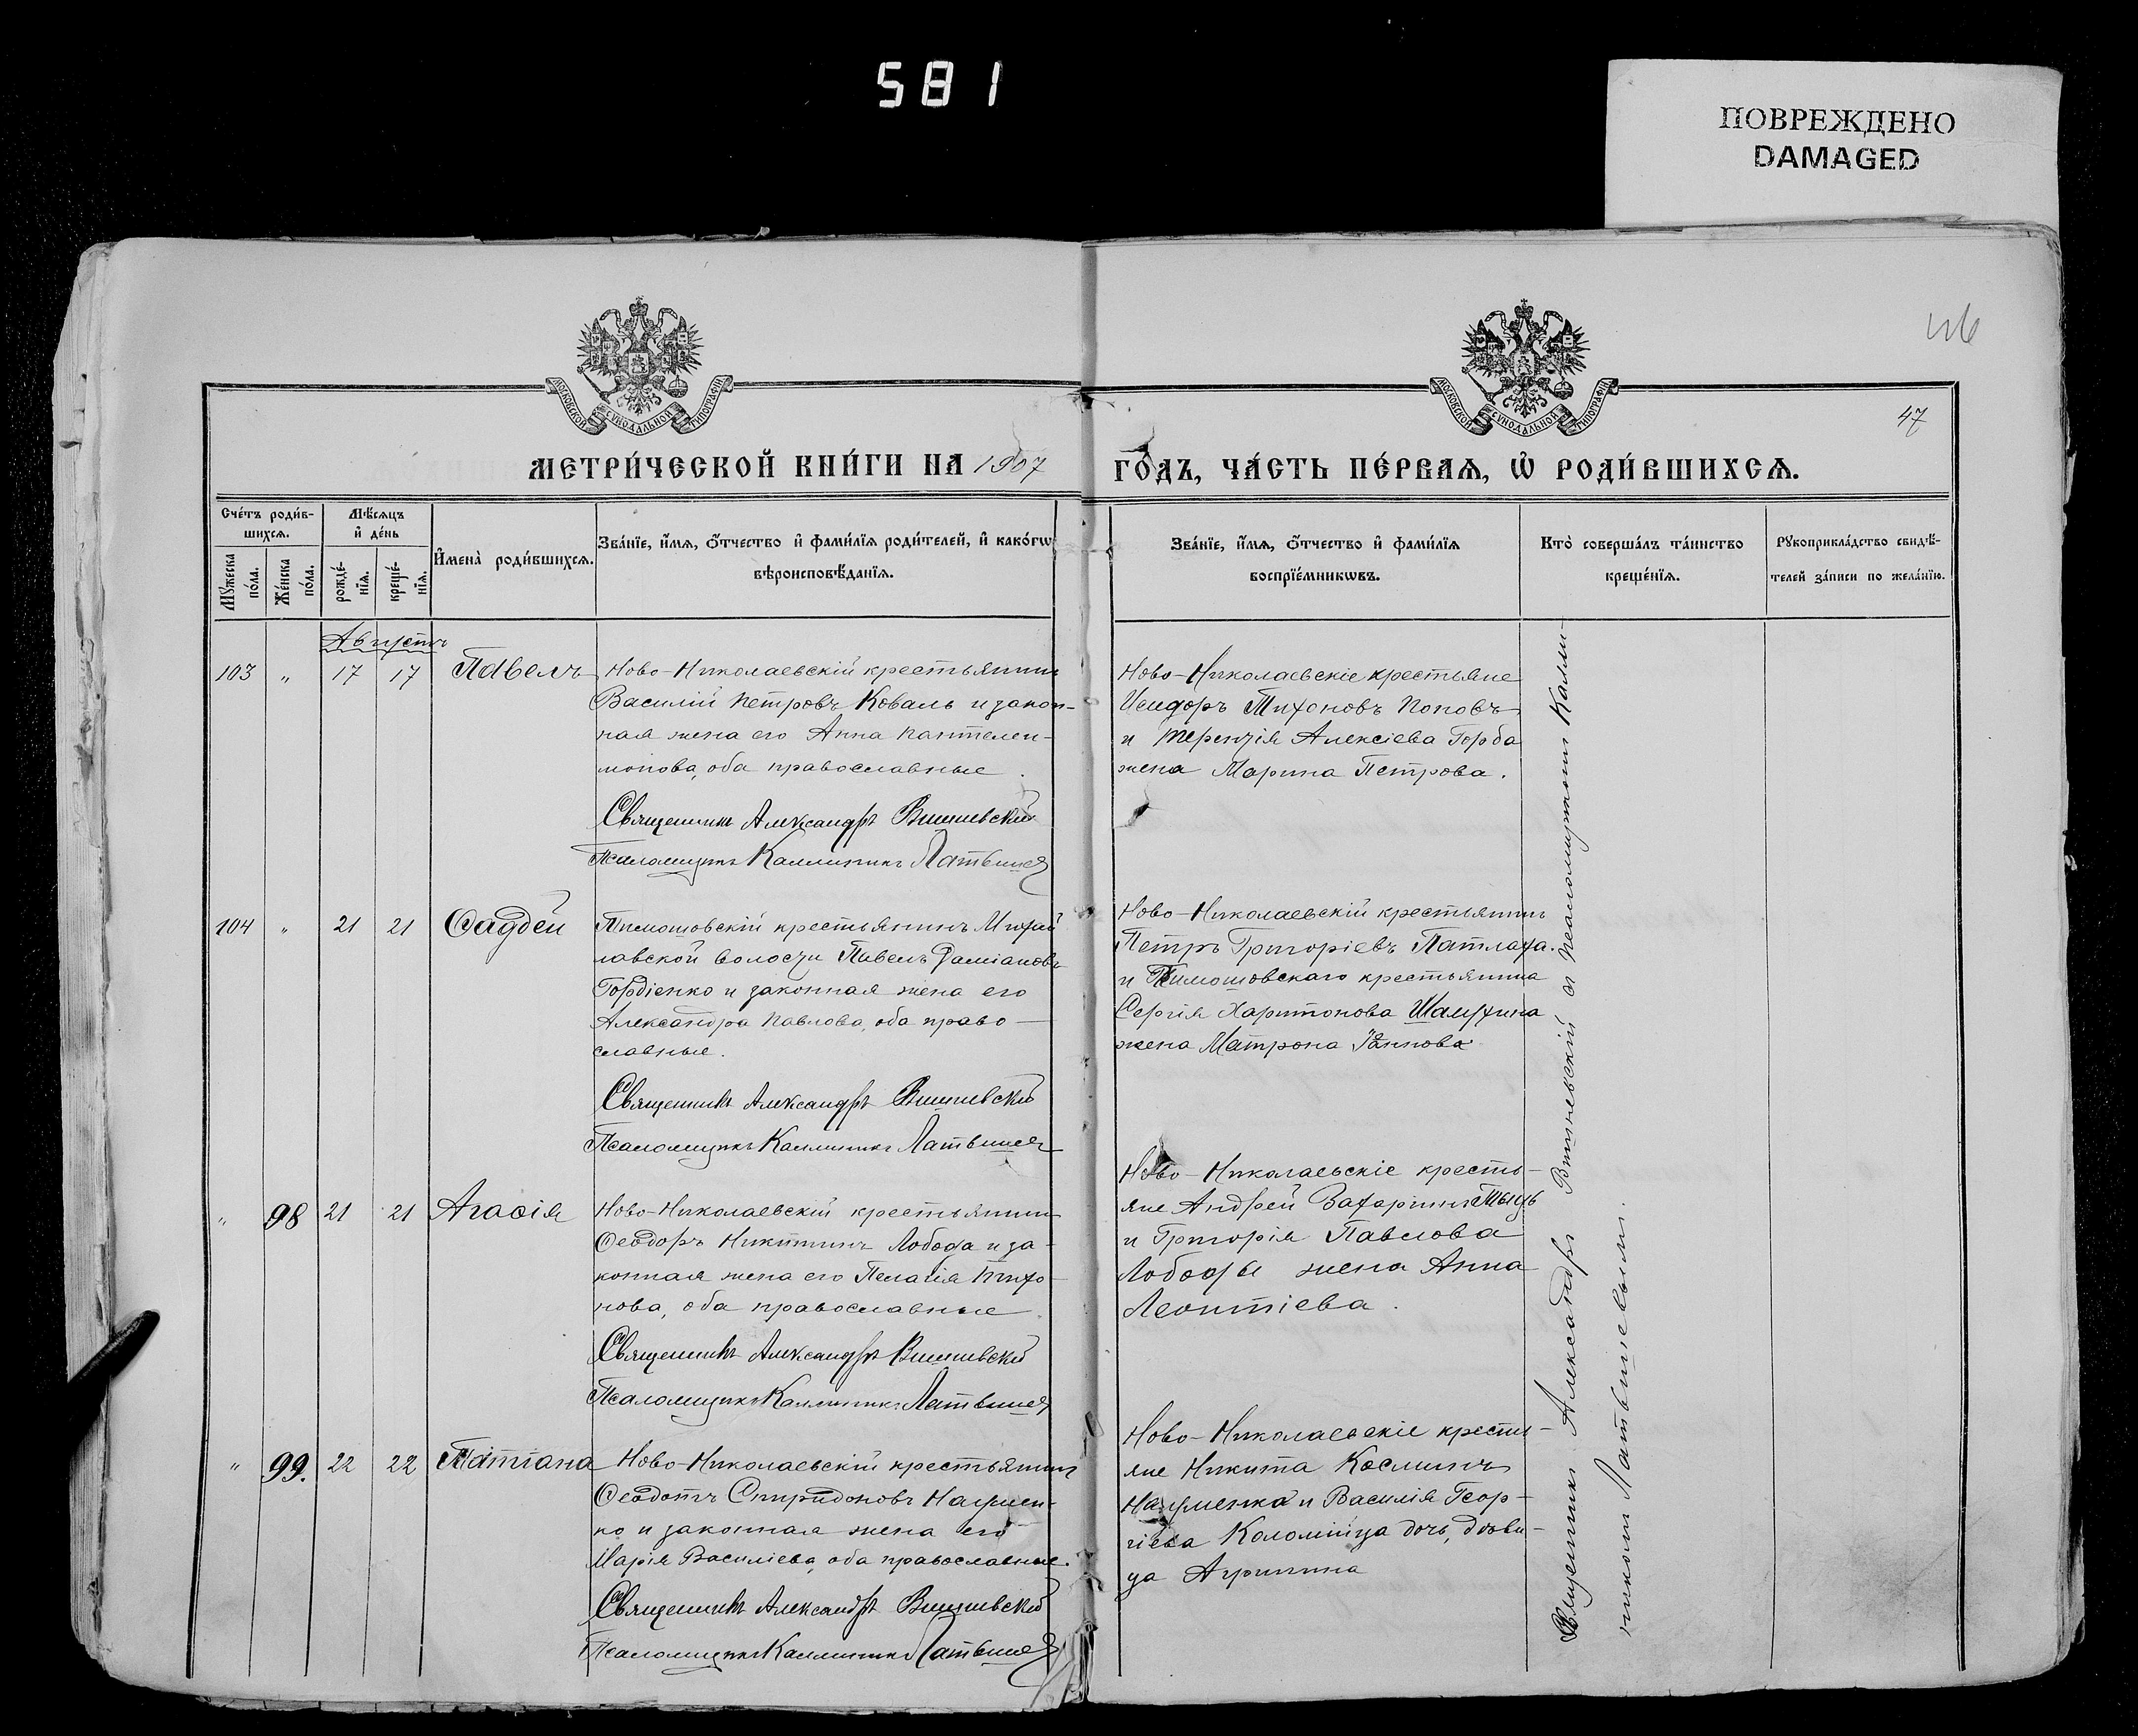 581
ПОВРЕЖДЕНО
DAMAGED
47
МОСКОВСКОЙ СѴНОДАЛЬНОЙ ТИПОГРАФІИ
МОСКОВСКОЙ СѴНОДАЛЬНОЙ ТИПОГРАФІИ
МЕТРИ́ЧЕСКОЙ КНИ́ГИ НА 1907
ГО́ДЪ, ЧА́СТЬ ПЕ́РВАѦ, Ѡ҆ РОДИ́ВШИХСѦ.
Сче́тъ роди́в-
шихсѧ.
Мꙋжеска по́ла.
Же́нска по́ла.
Мѣ́сѧцъ
и҆ де́нь
рожде́-
нїѧ.
креще́-
нїѧ.
И҆мена̀ роди́вшихсѧ.
Зва́нїе, и҆́мѧ, ѻ҆́тчество и҆ фами́лїѧ роди́телей, и҆ како́гѡ
вѣроисповѣ́данїѧ.
Зва́нїе, и҆́мѧ, ѻ҆́тчество и҆ фами́лїѧ
воспрїе́мникѡвъ.
Кто̀ соверша́лъ та́инство
креще́нїѧ.
Рꙋкоприкла́дство свидѣ́-
телей за́писи по жела́нїю.
Августъ
103 " 17 17 Павелъ
Ново-Николаевскій крестьянинъ
Василій Петровъ Коваль и закон-
ная жена его Анна Пантелеи-
монова, оба православные.
Священникъ Александръ Вишневскій
Псаломщикъ Каллиникъ Латвишев
Ново-Николаевскіе крестьяне
Исидоръ Тихоновъ Поповъ
и Терентія Алексіева Горба
жена Марина Петрова.
104 " 21 21 Фаддей
Тимошовскій крестьянинъ Михай
лавской волости Павелъ Даміановъ
Гордіенко и законная жена его
Александра Павлова, оба право-
славные.
Священникъ Александръ Вишневскій
Псаломщикъ Каллиникъ Латвишев
Ново-Николаевскій крестьянинъ
Петръ Григоріевъ Патлаха.
и Тимошовскаго крестьянина
Сергія Харитонова
жена Матрона
" 98 21 21 Агафія
Ново-Николаевскій крестьянинъ
Феодоръ Никитинъ Лобода и за-
конная жена его Пелагія Тихо-
нова, оба православные.
Священникъ Александръ Вишневскій
Псаломщикъ Каллиникъ Латвишев
Ново-Николаевскіе кресть-
яне Андрей Захаринъ
и Григорія Павлова
Лободы жена Анна
Леонтіева.
" 99. 22 22 Татіана
Ново-Николаевскій крестьянинъ
Феодотъ Спиридоновъ Наумен-
ко и законная жена его
Марія Василіева, оба православные.
Священникъ Александръ Вишневскій
Псаломщикъ Каллиникъ Латвишев
Ново-Николаевскіе кресть-
яне Никита Косминъ
Науменко и Василія Геор-
гіева Коломійца дочь, дѣви-
ца Агрипина
Священникъ Александръ Вишневскій съ псаломщикомъ Калли-
никомъ Латвишевымъ.